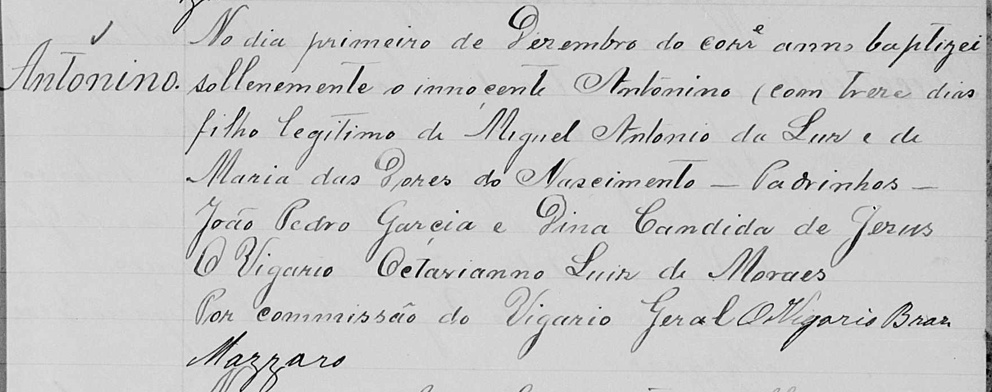 Antonino.
No dia primeiro de Dezembro do corrᵉ anno baptizei
sollenemente o innocente Antonino (com treze dias
filho legitimo de Miguel Antonio da Luz e de
Maria das Dores do Nascimento — Padrinhos —
João Pedro Garcia e Dina Candida de Jezus
O Vigario Octavianno Luiz de Moraes
Por commissão do Vigario Geral O Vigario Braz
Mazzaro